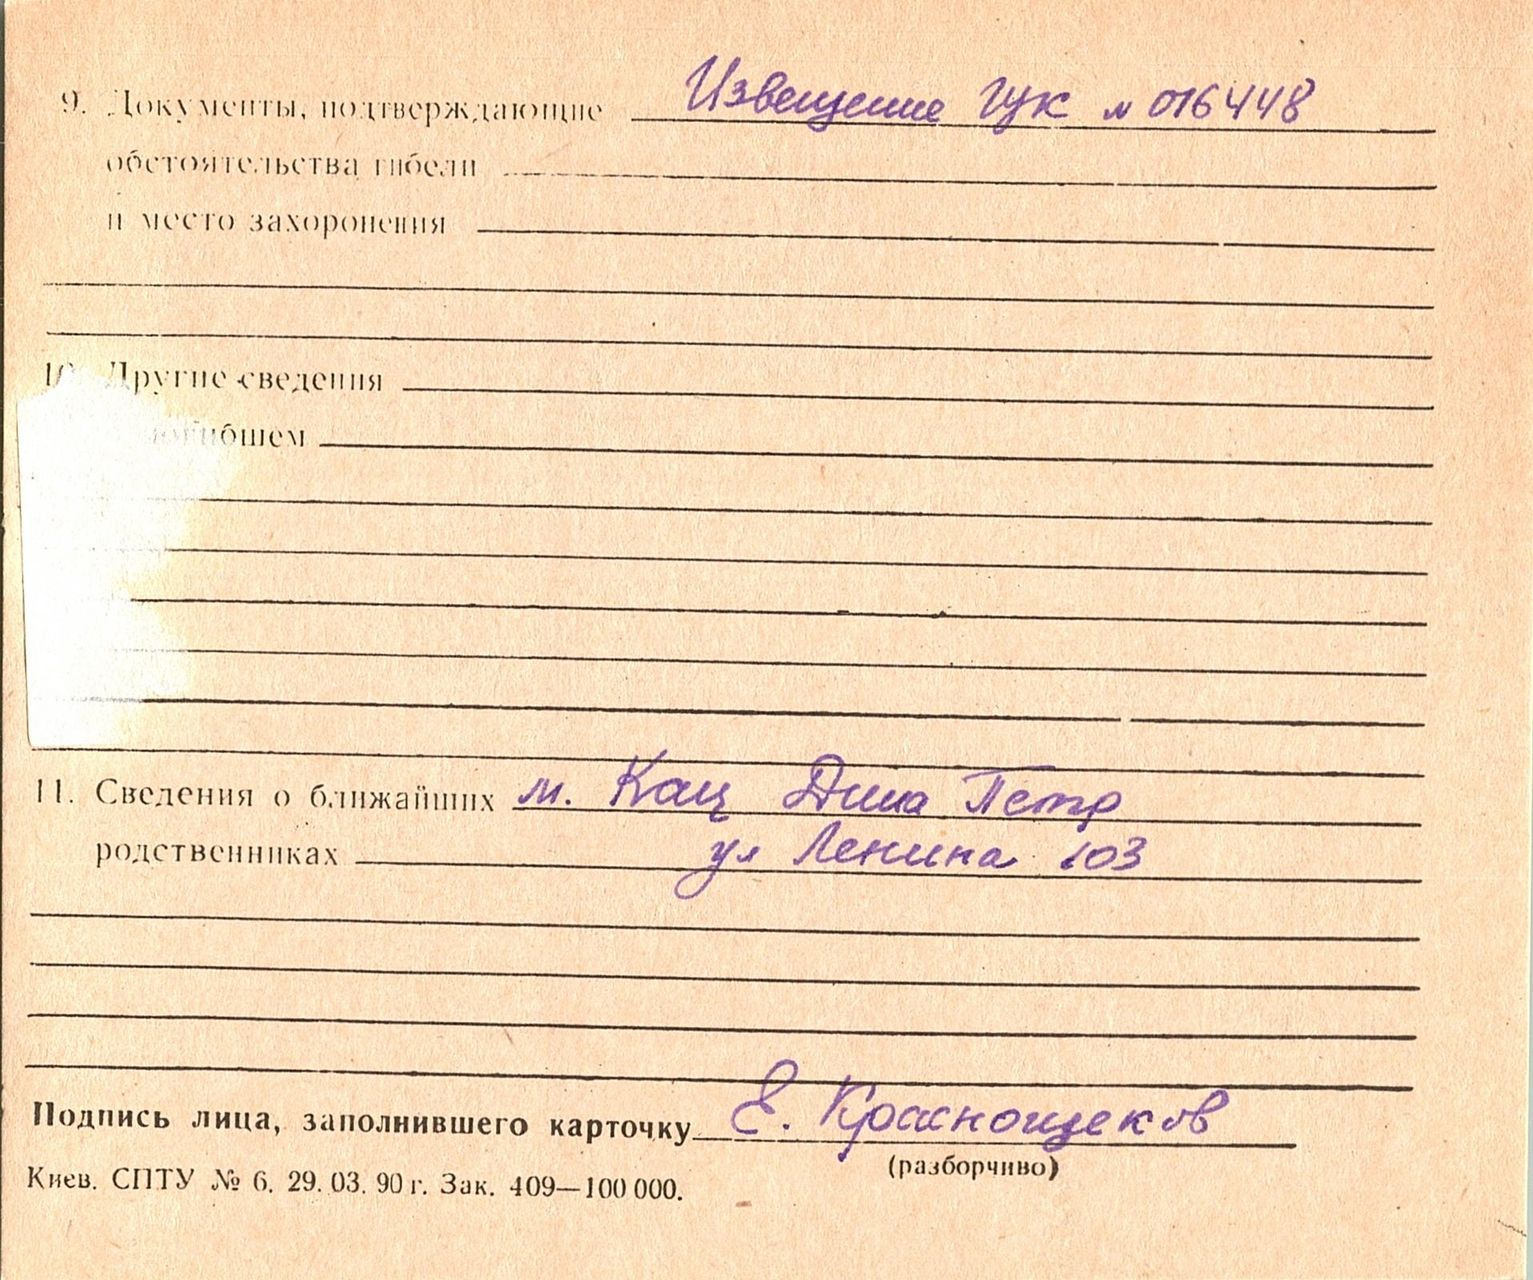 9. Документы, подтверждающие Извещение ГУК № 016448
обстоятельства гибели
и место захоронения
10. Другие сведения
погибшем
11. Сведения о ближайших м. Кац Дина Петр
родственниках ул Ленина 103
Подпись лица, заполнившего карточку Е. Краснощеков
(разборчиво)
Киев. СПТУ № 6. 29. 03. 90 г. Зак. 409—100 000.